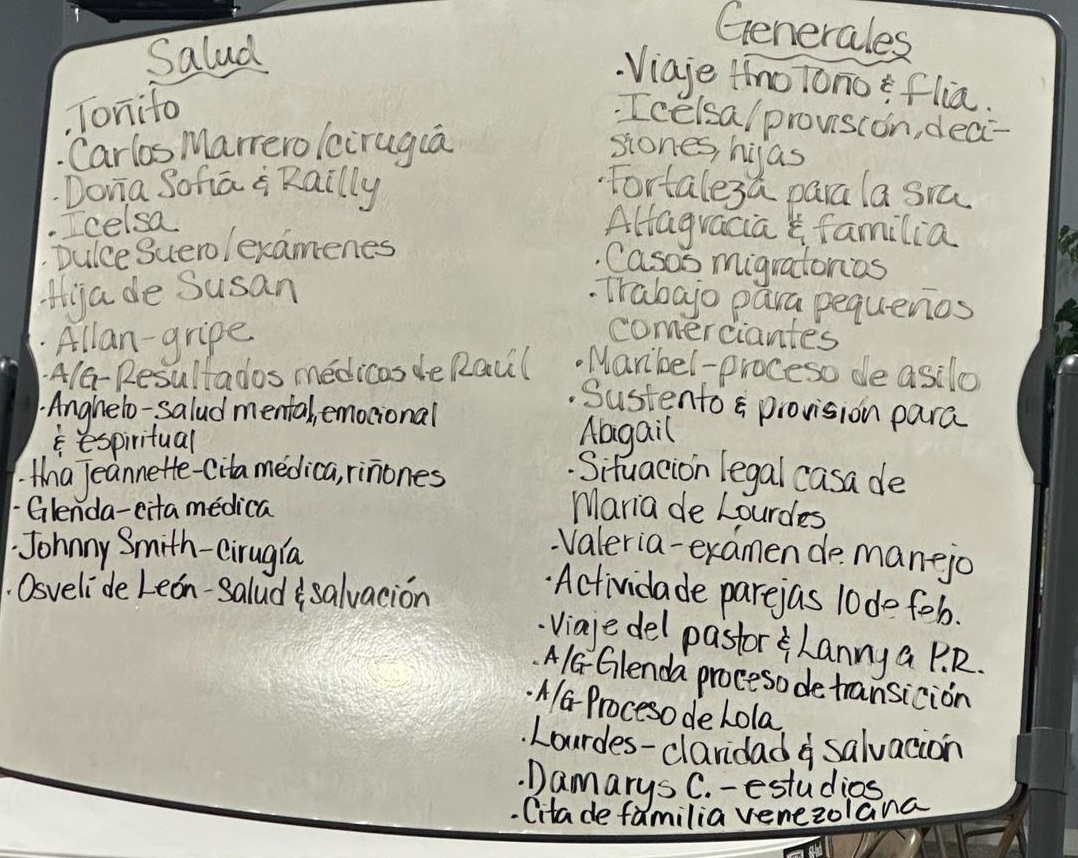 Salud
.Toñito
.Carlos Marrero/cirugía
.Doña Sofía & Railly
.Icelsa
.Dulce Suero/exámenes
.Hija de Susan
.Allan-gripe
.A/G-Resultados médicos de Raúl
.Anghelo-salud mental, emocional
& espiritual
.Hna Jeannette-Cita médica, riñones
.Glenda-cita médica
.Johnny Smith-Cirugía
.Osvelí de León-Salud & salvación
Generales
.Viaje Hno Toño & flia.
.Icelsa/provisión, deci-
siones, hijas
.Fortaleza para la sra
Altagracia & familia
.Casos migratorios
.Trabajo para pequeños
comerciantes
.Maribel-proceso de asilo
.Sustento & provisión para
Abigail
.Situación legal casa de
Maria de Lourdes
.Valeria-exámen de manejo
.Actividade parejas 10 de feb.
.Viaje del pastor & Lanny a P.R.
.A/G-Glenda proceso de transición
.A/G-Proceso de Lola
.Lourdes-claridad & salvación
.Damarys C.-estudios
.Cita de familia venezolana